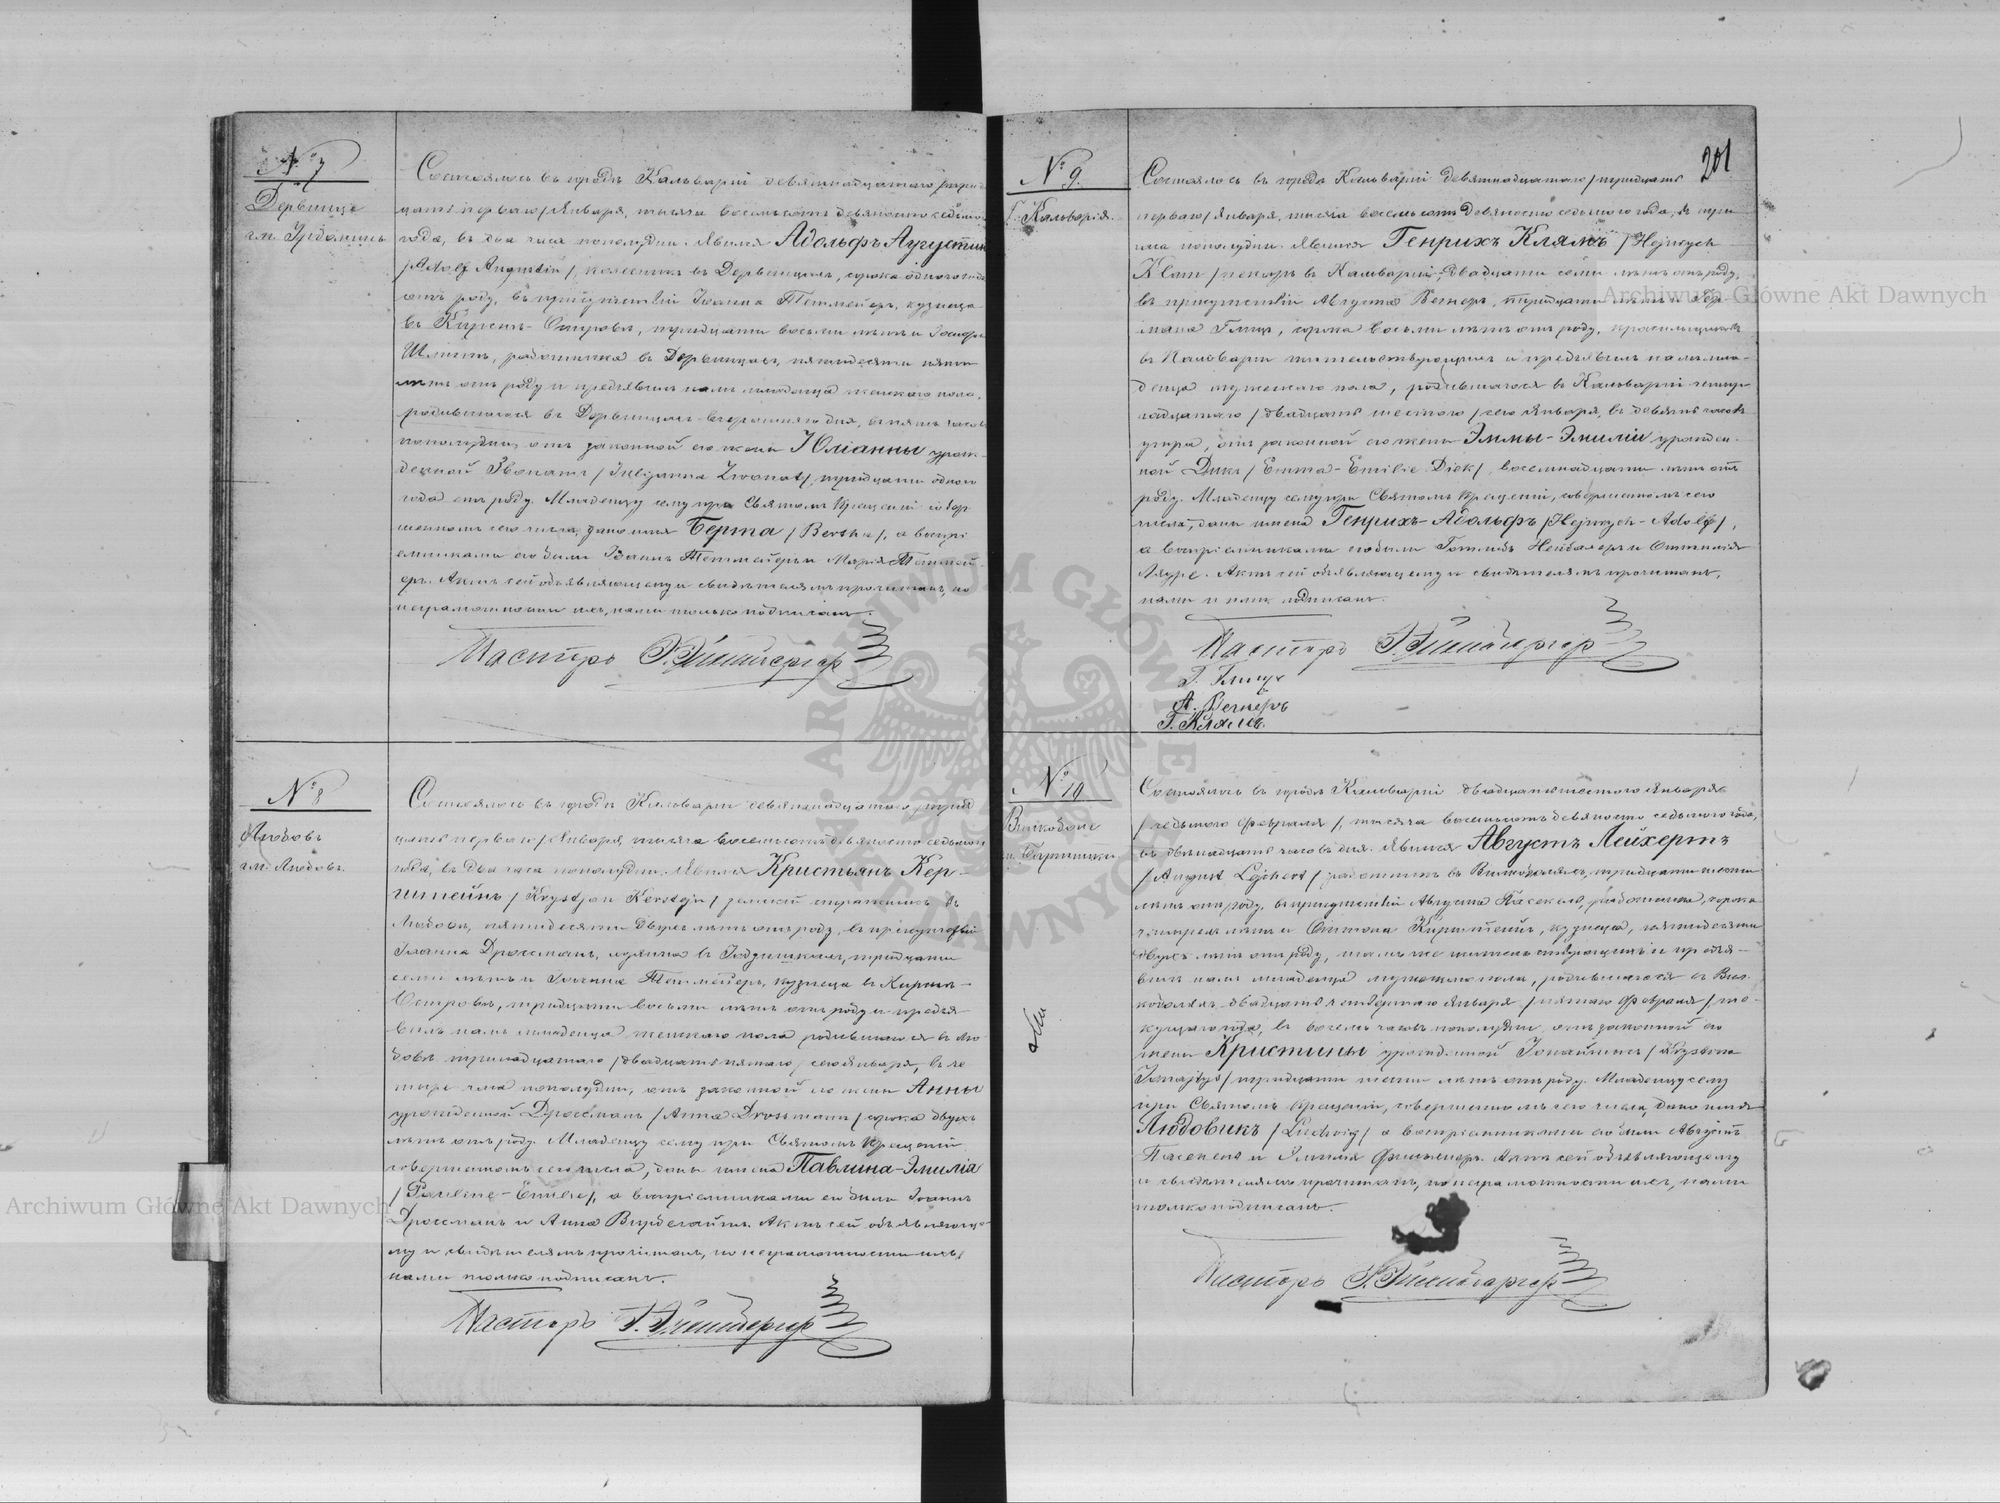 № 7
Дервинце
гм. Урдоминъ
Состоялось въ городѣ Кальваріи девятнадцатаго /тридцать
перваго/ Января, тысяча восемьсотъ девяносто седьмого
года, въ два часа пополудни. Явился Адольфъ Аугустинъ
/Adolf Augustin/, колесникъ въ Дервинцахъ, сорока одного года
отъ роду, въ присутствіи Іоанна Тетмейеръ, кузнеца
въ Кирсна-Островѣ, тридцати восьми лѣтъ и Іосифа
работника въ Дервинцахъ, пятидесяти пяти
лѣтъ отъ роду и предъявилъ намъ младенца женскаго пола,
родившагося въ Дервинцахъ вчерашняго дня, въ пять часовъ
пополудни, отъ законной его жены Юліанны урож-
денной Звонатъ /Juljanna Zwonat/, тридцати одного
года отъ роду. Младенцу сему при Святомъ Крещеніи совер-
шенномъ сего числа, дано имя Берта /Bertha/, а воспрі-
емниками его были Іоаннъ Тетмейеръ и Марія
Актъ сей объявляющему и свидѣтелямъ прочитанъ, по
неграмотности ихъ, нами только подписанъ.
Пасторъ
№ 8
Людовъ
гм. Людовъ.
Состоялось въ городѣ Кальваріи девятнадцатаго /тридцать
перваго/ Января, тысяча восемьсотъ девяносто седьмого
года, въ два часа пополудни. Явился Кристьянъ Кер-
штейнъ /Krystjan Kerstejn/ земскій стражникъ въ
Людовѣ, пятидесяти двухъ лѣтъ отъ роду, въ присутствіи
Іоанна Дроссманъ, въ тридцати
семи лѣтъ и Іоанна Тетмейеръ, кузнеца въ Кирсна-
Островѣ, тридцати восьми лѣтъ отъ роду и предъя-
вилъ намъ младенца женскаго пола родившагося въ Лю-
довѣ тринадцатаго /двадцать пятаго/ сего Января, въ че-
тыре часа пополудни, отъ законной его жены Анны
урожденной Дроссманъ /Anna Drossmann/ сорока двухъ
лѣтъ отъ роду. Младенцу сему при Святомъ Крещеніи
совершенномъ сего числа, даны имена Павлина-Эмилія
/Pauline-Emilie/, а воспріемниками его были Іоаннъ
Дроссманъ и Анна Актъ сей объявляюще-
му и свидѣтелямъ прочитанъ, по неграмотности ихъ,
нами только подписанъ.
Пасторъ
201
№ 9.
Г. Кальварія.
Состоялось въ городѣ Кальваріи девятнадцатаго /тридцать
перваго/ Января, тысяча восемьсотъ девяносто седьмого года, въ три
часа пополудни. Явился Генрихъ Клямъ /Hejnrych
Klam/ пекарь въ Кальваріи, двадцати семи лѣтъ отъ роду,
въ присутствіи Августа Вегнеръ, тридцати лѣтъ и Гер-
мана Глицъ, сорока восьми лѣтъ отъ роду, красильщиковъ
въ Кальваріи жительствующихъ и предъявилъ намъ мла-
денца мужескаго пола, родившагося въ Кальваріи четыр-
надцатаго /двадцать шестого/ сего Января, въ девять часовъ
утра, отъ законной его жены Эммы-Эмиліи урожден-
ной Дикъ /Emma-Emilie Dick/, восемнадцати лѣтъ отъ
роду. Младенцу сему при Святомъ Крещеніи, совершенномъ сего
числа, даны имена Генрихъ-Адольфъ /Hejnrych-Adolf/,
а воспріемниками его были Готлибъ и Оттилія
Актъ сей объявляющему и свидѣтелямъ прочитанъ,
нами и ими подписанъ.
Пасторъ
Г. Глицъ
А. Вегнеръ
Г. Клямъ.
№ 10
Вилкоболе
Состоялось въ городѣ Кальваріи двадцать шестого Января
/седьмого Февраля/, тысяча восемьсотъ девяносто седьмого года,
въ двѣнадцать часовъ дня. Явился Августъ Лейхертъ
/August Lejchert/ работникъ въ Вилкоболяхъ, тридцати шести
лѣтъ отъ роду, въ присутствіи Августа работника, сорока
четырехъ лѣтъ и Оттона Кирштейнъ, кузнеца, пятидесяти
двухъ лѣтъ отъ роду, тамъ же жительствующихъ и предъя-
вилъ намъ младенца мужескаго пола, родившагося въ Вил-
коболяхъ двадцать четвертаго Января /пятаго Февраля/ те-
кущаго года, въ восемь часовъ пополудни, отъ законной его
жены Кристины урожденной /Krystona
тридцати шести лѣтъ отъ роду. Младенцу сему
при Святомъ Крещеніи, совершенномъ сего числа, дано имя
Людовикъ /Ludwig/ а воспріемниками его были Августъ
и Эмилія Актъ сей объявляющему
и свидѣтелямъ прочитанъ, по неграмотности ихъ, нами
только подписанъ.
Пасторъ
Archiwum Główne Akt Dawnych
Archiwum Główne Akt Dawnych
ARCHIWUM GŁÓWNE AKT DAWNYCH